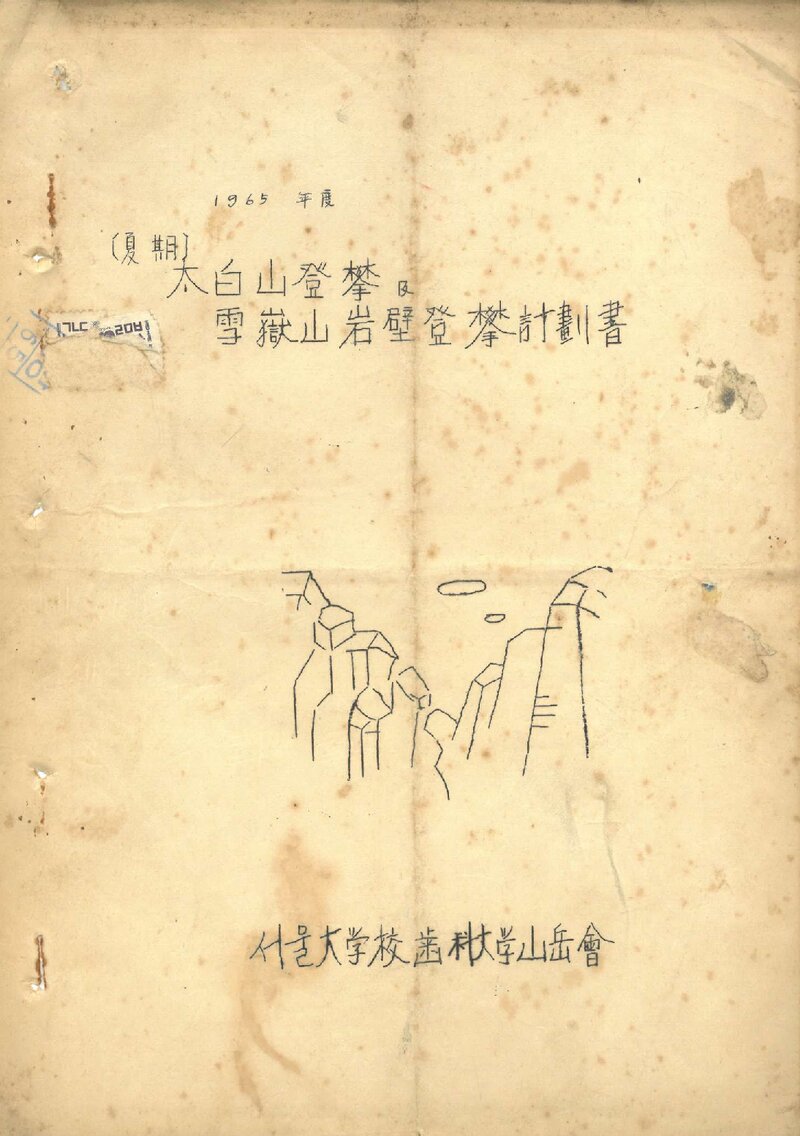 1965 年度
〔夏期〕
太白山登攀 及
雪嶽山岩壁登攀計劃書
서울大学校歯科大学山岳會